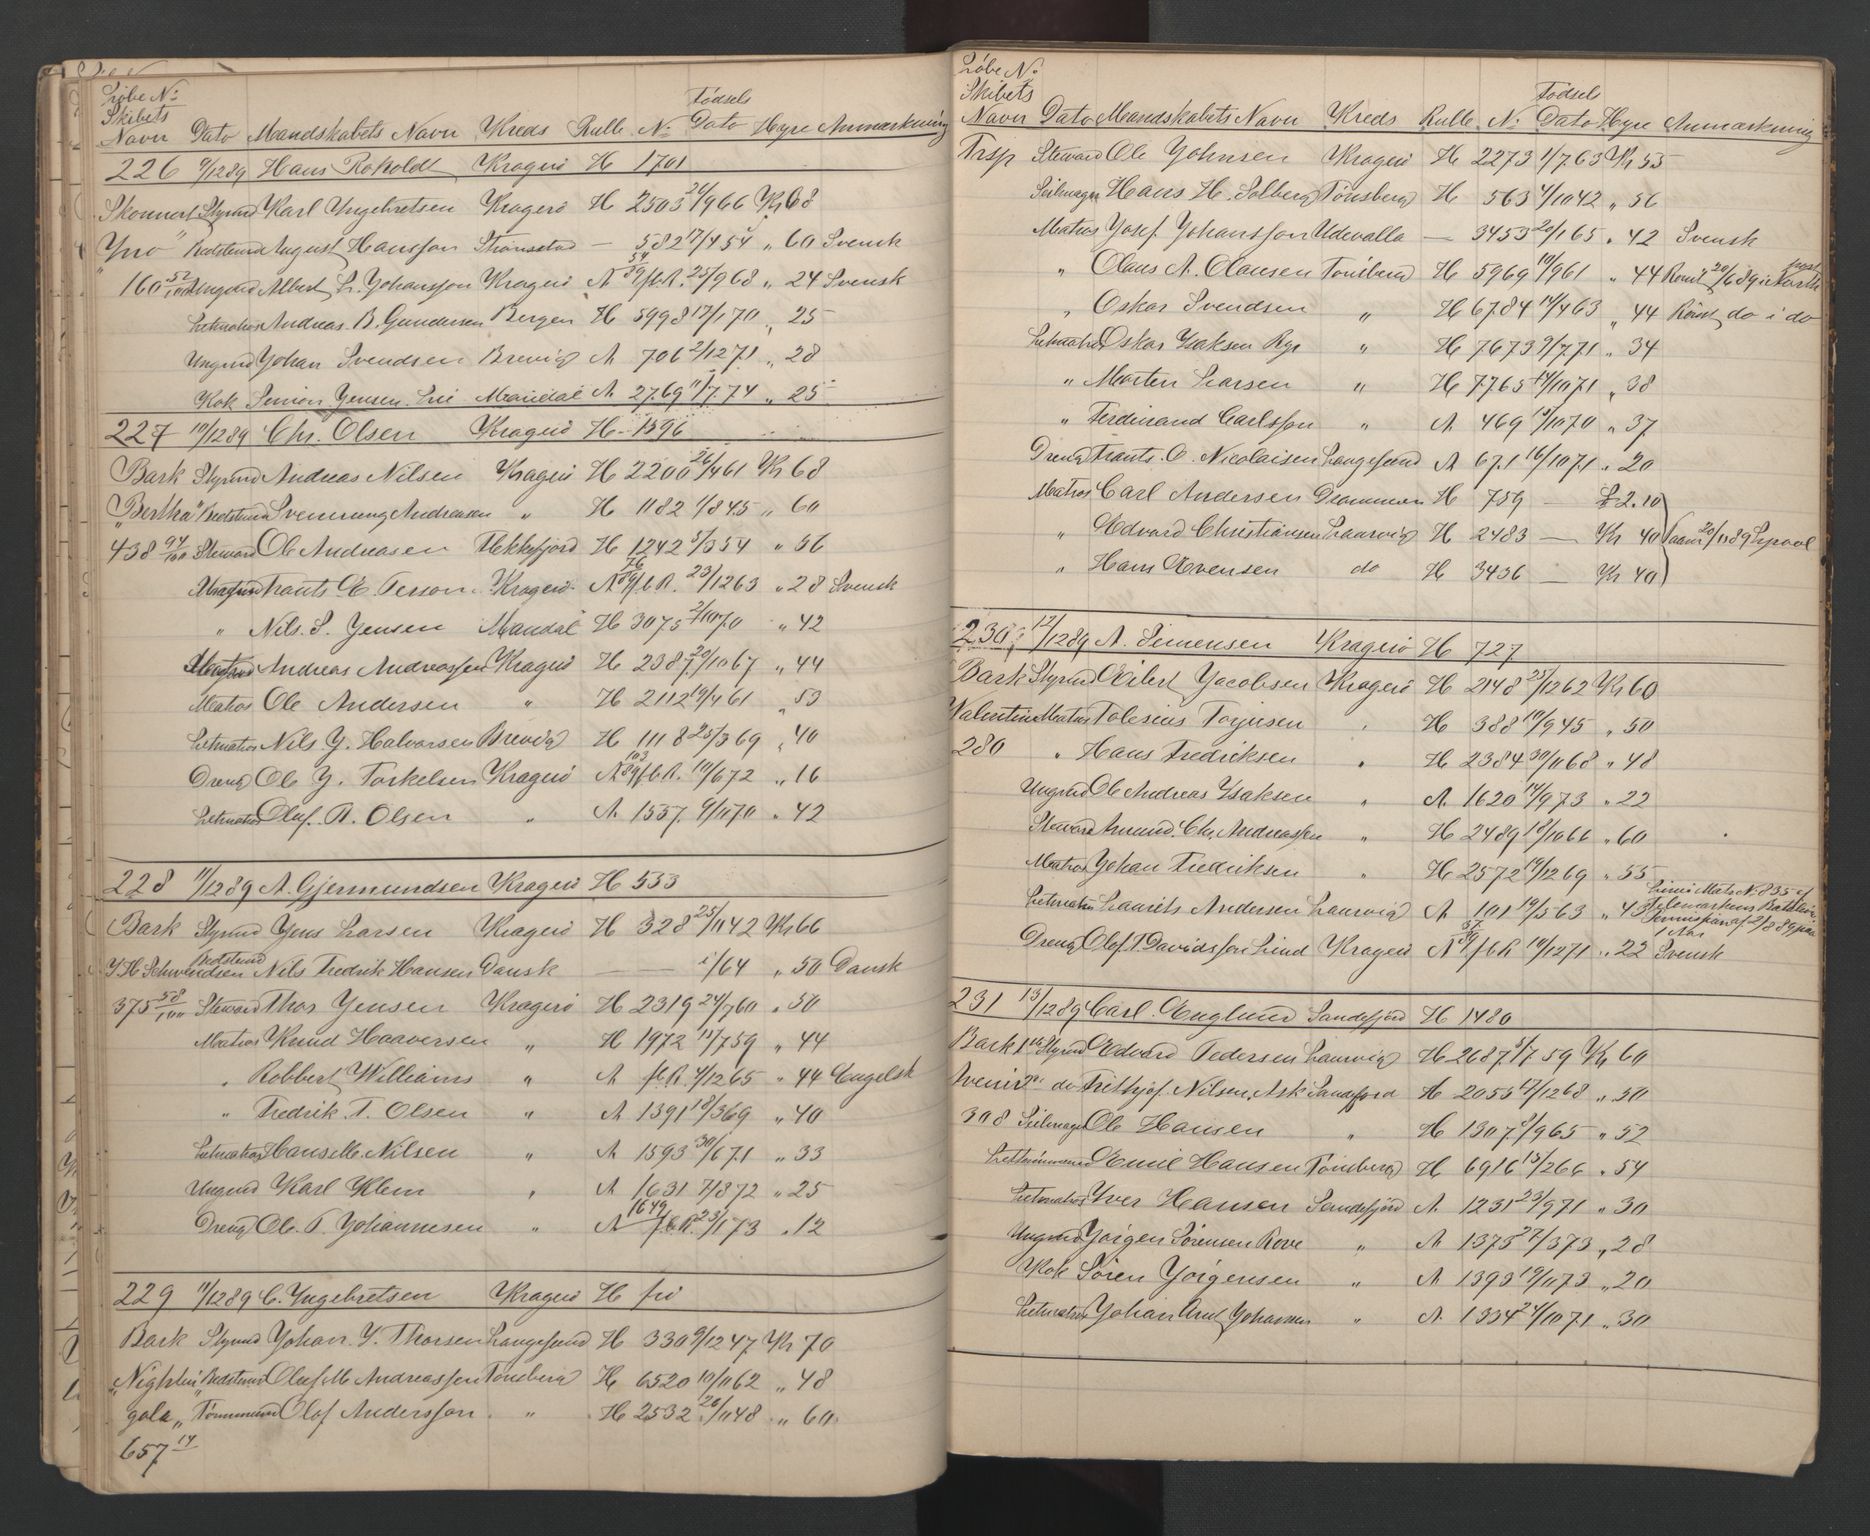 Löbe No
Skibets
Navn Dato Mandskabets Navn Kreds Rulle No Fødsels Dato Hyre Anmærkning
226 9/12 89 Hans Roholdt Kragerö H 1701
Skonnert Styrmd Karl Yngebretsen Kragerö H 2503 26/9 66 Kr 68
"Yno" Bedstmd August Hansson Strömstad — 582 17/4 54 " 60 Svensk
160 52/100 Ungmd Albert L. Johansson Kragerö A 54/89 fl.R. 25/9 68 " 24 Svensk
Letmatros Andreas B. Gundersen Bergen H 5998 17/1 70 " 25
Ungmd Johan Svendsen Brevig A 706 2/12 71 " 28
Kok Simon Jensen Lie Mandal A 2769 11/7 74 " 25
227 10/12 89 Chr. Olsen Kragerö H 1596
Bark Styrmd Andreas Nilsen Kragerö H 2200 26/4 61 Kr 68
"Bertha" Bedstmd Svenning Andreasen " H 1182 1/8 45 " 60
438 94/100 Steward Ole Andreasen Flekkefjord H 1242 5/3 54 " 56
Frants E. Person Kragerö A 76/89 fl.R. 23/12 63 " 28 Svensk
" Nils S. Jensen Mandal H 3075 2/10 70 " 42
Andreas Andreassen Kragerö H 2387 20/10 67 " 44
Matros Ole Andersen " H 2112 19/4 61 " 53
Letmatros Nils J. Halvorsen Brevig H 1118 25/3 69 " 40
Dreng Ole J. Torkelsen Kragerö A 103/89 fl.R. 10/6 72 " 16
Letmatros Oluf R. Olsen " A 1557 9/11 70 " 42
228 11/12 89 A. Gjermundsen Kragerö H 533
Bark Styrmd Jens Larsen Kragerö H 328 25/11 42 Kr 66
J H Schwendsen Bedstmd Nils Fredrik Hansen Dansk — — 1/64 " 50 Dansk
375 58/100 Steward Thor Jensen Kragerö H 2319 24/7 60 " 50
Matros Knud Haaversen " H 1972 11/7 59 " 44
" Robbert Williams " A fl.R. 4/12 65 " 44 Engelsk
" Fredrik T. Olsen " A 1391 18/3 69 " 40
Letmatros Hans M. Nilsen " A 1593 30/6 71 " 33
Ungmd Karl Klem " A 1631 7/8 72 " 25
Dreng Ole T. Johannesen " A 1649 fl.R. 23/1 73 " 12
229 11/12 89 C. Yngebretsen Kragerö H fri
Bark Styrmd Johan J. Thorsen Langesund H 330 9/12 47 Kr 70
"Nightin Bedstmd Oluf M Andreassen Tönsberg H 6520 10/11 62 " 48
gale" Tömmermd Olof Andersson " H 2532 26/11 48 " 60
657 14
Löbe No
Skibets
Navn Dato Mandskabets Navn Kreds Rulle No Fødsels Dato Hyre Anmærkning
Trsp Steward Ole Johnsen Kragerö H 2273 1/7 63 Kr 55
Seilmager Hans H. Solberg Tönsberg H 563 4/10 42 " 56
Matros Josef Johansson Udevalla — 3453 20/1 65 " 42 Svensk
" Olaus A. Olausen Tönsberg H 5969 10/9 61 " 44 Römt 20/6 89 i
" Oskar Svendsen " H 6784 14/4 63 " 44 Römt do i do
Letmatros Oskar Isaksen Rge " H 7673 9/7 71 " 34
" Morten Larsen " H 7765 14/10 71 " 38
" Ferdinand Carlsson " A 469 19/10 70 " 37
Dreng Frants O. Nicolaisen Langesund A 671 16/10 71 " 20
Matros Carl Andersen Drammen H 759 — £ 2.10
" Edvard Christiansen Laurvig H 2483 — Kr 40
" Hans Evensen do H 3436 — Kr 40
230 12/12 89 A. Simensen Kragerö H 727
Bark Styrmd Eilert Jacobsen Kragerö H 2148 25/12 62 Kr 60
Valentin Matros Tolesius Torjusen " H 388 10/9 45 " 50
280 " Hans Fredriksen " H 2384 30/11 68 " 48
Ungmd Ole Andreas Isaksen " A 1620 14/9 73 " 22
Steward Amund Chr. Andreassen " H 2489 12/10 66 " 60
Matros Johan Fredriksen " H 2572 19/12 69 " 55
Letmatros Laurits Andersen Laurvig A 101 19/5 63 " 45 Linie Mats No 835 af Telemarkens Bataljon Permission af 2/8 89 paa 1 Aar
Dreng Olof T. Davidsson Lind Kragerö A 37/89 fl.R 10/12 71 " 22 Svensk
231 13/12 89 Carl Englund Sandefjord H 1480
Bark 1ste Styrmd Edvard Pedersen Laurvig H 2687 5/7 59 Kr 60
Avenir 2 do Frithjof Nilsen Ask Sandefjord H 2053 17/12 68 " 50
308 Seilmager Ole Hansen " H 1307 8/9 65 " 52
Emil Hansen Tönsberg H 6916 15/2 66 " 54
Letmatros Iver Hansen Sandefjord A 1231 23/9 71 " 30
Ungmd Jörgen Sörensen Rove " A 1375 27/3 73 " 28
Kok Sören Jörgensen " A 1393 19/11 73 " 20
Letmatros Johan Johansen " A 1334 24/10 71 " 30